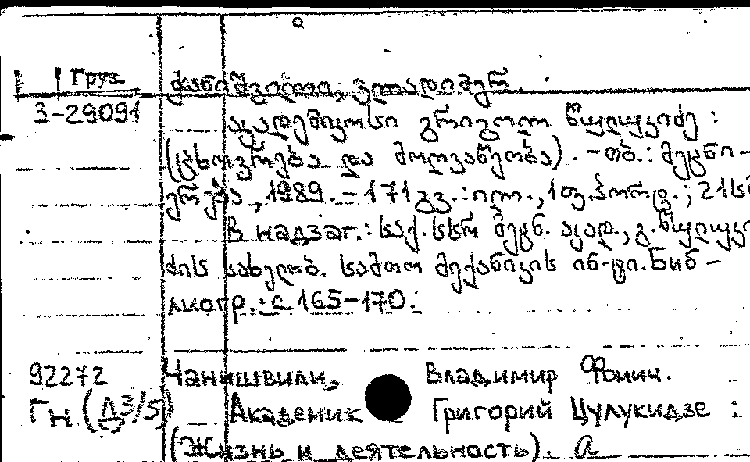 Груз
ჭანიშვილი, ვლადიმერ.
3-29091
აკადემიკოსი გრიგოლ წულუკიძე :
(ცხოვრება და მოღვაწეობა). - თბ. : მეცნი-
ერება, 1989. - 171 გვ. : ილ., 1 ფ. პორტ. ; 21 სმ
В надзаг. : საქ. სსრ მეცნ. აკად., გ. წულუკი
ძის სახელობ. სამთო მექანიკის ინ-ტი. Биб-
лиогр. : с 165-170.
92272 Чанишвили, Владимир Фомич.
ГН (Д3/5) Академик Григорий Цулукидзе :
(Жизнь и деятельность).